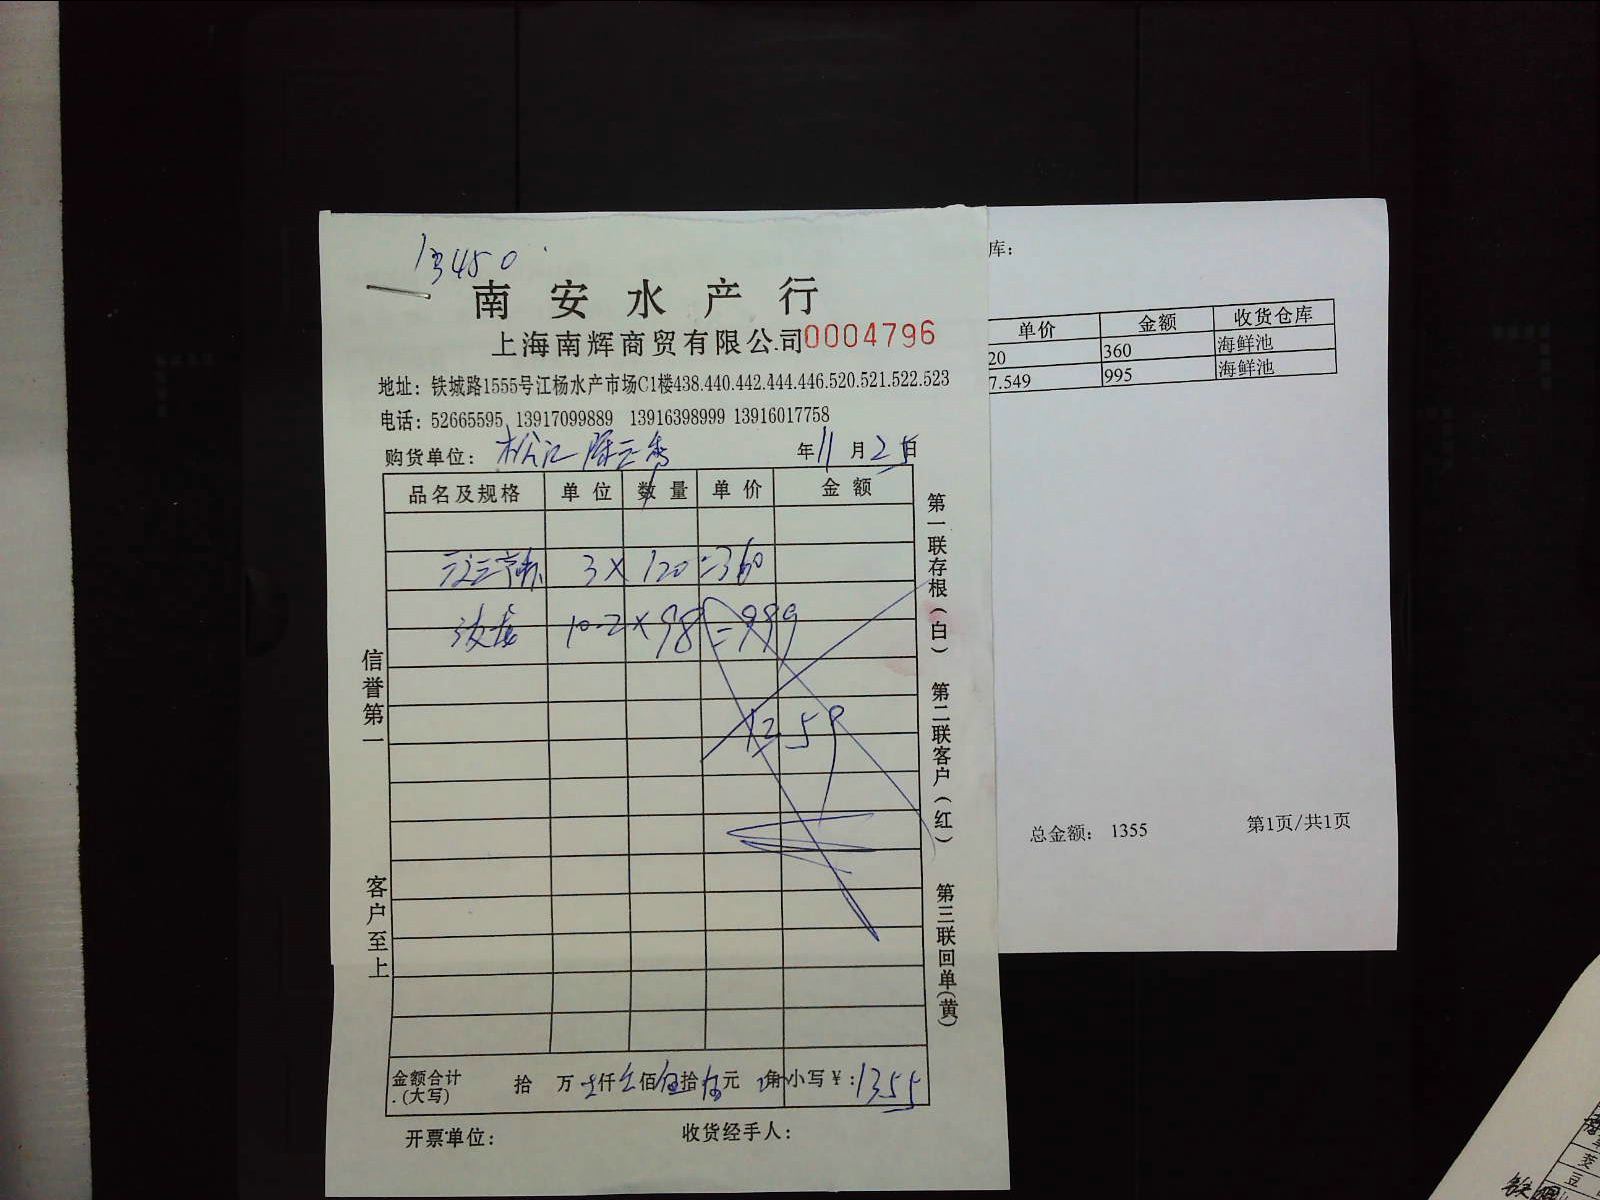 13450
南安水产行
上海南辉商贸有限公司 0004796
地址：铁城路1555号江杨水产市场C1楼438.440.442.444.446.520.521.522.523
电话：52665595 13917099889 13916398999 13916017758
购货单位：松江 年11月25日
品名及规格 单位 数量 单价 金额
3×120=360
10-2×98=999
1359
金额合计(大写) 拾 万 仟 佰 伍拾 伍元 角 小写￥：1355
开票单位： 收货经手人：
信誉第一
客户至上
第一联存根(白)
第二联客户(红)
第三联回单(黄)
库：
单价 金额 收货仓库
20 360 海鲜池
7.549 995 海鲜池
总金额： 1355 第1页/共1页
豆